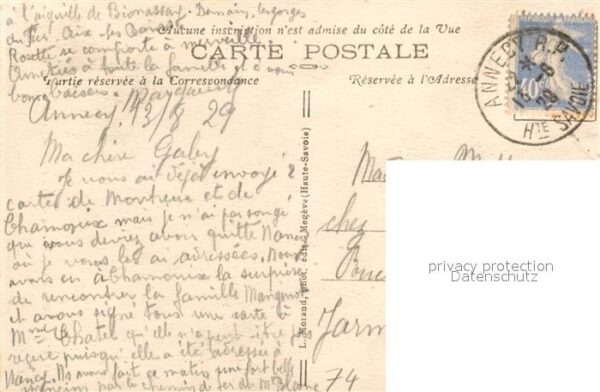 à l'aiguille de Bionnassay. Demain, les gorges
du Fier, Aix-les-Bains
Rosette se comporte à merveille.
Amitiés à toute la famille et à vous
bons baisers. Marguerite
Aucune inscription n'est admise du côté de la Vue
CARTE POSTALE
Partie réservée à la Correspondance
Réservée à l'Adresse
ANNECY R.P.
Hte SAVOIE
40c
Annecy 13/8 29
Ma chère Gaby
Je vous ai déjà envoyé 2
cartes de Montreux et de
Chamonix mais je n'ai pas songé
que vous deviez avoir quitté Nancy
où je vous les ai adressées. Nous
avons eu à Chamonix la surprise
de rencontrer la famille Mangenot
et avons signé tous une carte à
Mme Chatel qu'elle n'a peut-être pas
reçue puisqu'elle a été adressée à
Nancy. Ns avons fait ce matin une fort belle
par le chemin de fer du Mt Blanc
L. Morand, phot. édit., Megève (Haute-Savoie)
chez
74
privacy protection
Datenschutz